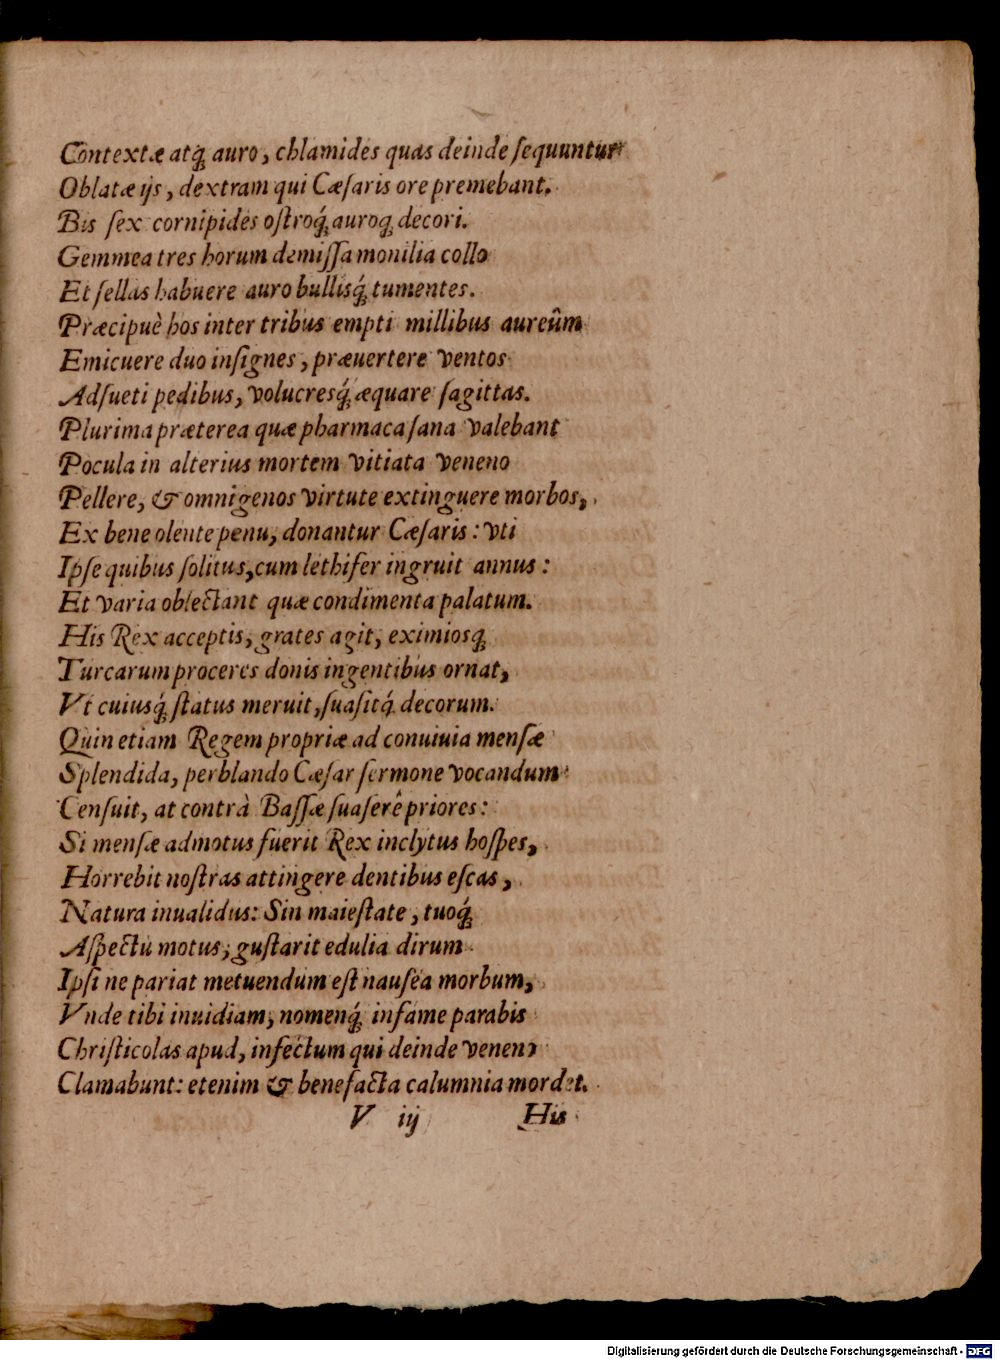 Contextæ atq́ auro, chlamides quas deinde ſequuntur
Oblatæ ijs, dextram qui Cæſaris ore premebant.
Bis ſex cornipides oſtroq́ auroq́ decori.
Gemmea tres horum demiſſa monilia collo
Et ſellas habuere auro bullisq́ tumentes.
Præcipuè hos inter tribus empti millibus aureûm
Emicuere duo inſignes, præuertere ventos
Adſueti pedibus, volucresq́ æquare ſagittas.
Plurima præterea quæ pharmaca ſana valebant
Pocula in alterius mortem vitiata veneno
Pellere, & omnigenos virtute extinguere morbos,
Ex bene olente penu, donantur Cæſaris: vti
Ipſe quibus ſolitus, cum lethifer ingruit annus:
Et varia oblectant quæ condimenta palatum.
His Rex acceptis, grates agit, eximiosq́
Turcarum proceres donis ingentibus ornat,
Vt cuiusq́ ſtatus meruit, ſuaſitq́ decorum.
Quin etiam Regem propriæ ad conuiuia menſæ
Splendida, perblando Cæſar ſermone vocandum
Cenſuit, at contrà Baſſæ ſuaſerê priores:
Si menſæ admotus fuerit Rex inclytus hoſpes,
Horrebit noſtras attingere dentibus eſcas,
Natura inualidus: Sin maieſtate, tuoq́
Aſpectu motus, guſtarit edulia dirum
Ipſi ne pariat metuendum eſt nauſea morbum,
Vnde tibi inuidiam, nomenq́ infame parabis
Chriſticolas apud, infectum qui deinde veneno
Clamabunt: etenim & benefacta calumnia mordet.
V iij His
Digitalisierung gefördert durch die Deutsche Forschungsgemeinschaft - DFG